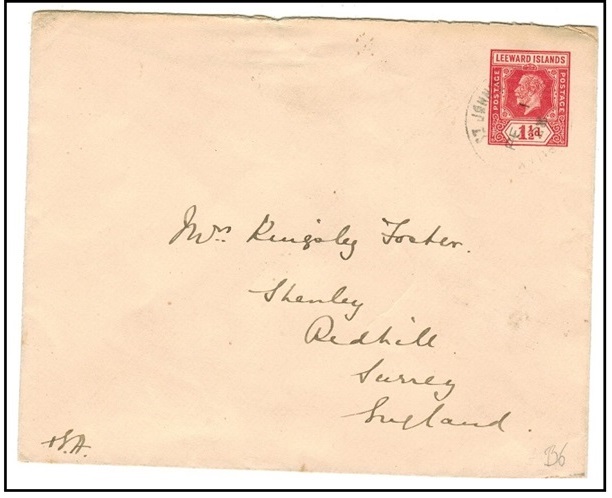 LEEWARD ISLANDS
POSTAGE POSTAGE
1½d.
ST JOHN
Mrs Kingsley Foster.
Shenley
Redhill
Surrey
England.
B6